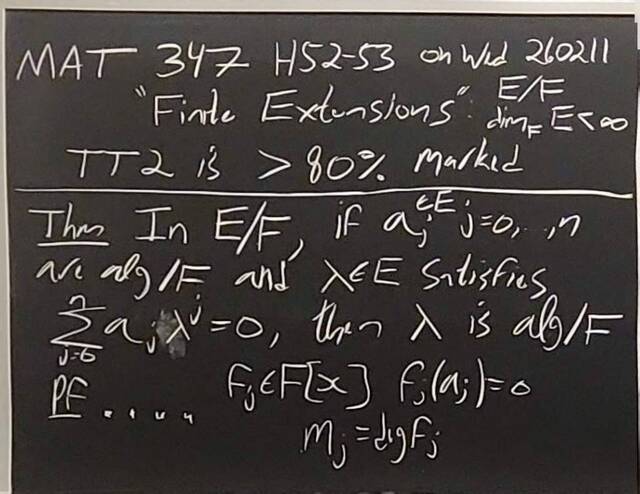 MAT 347 H52-53 on Wed 260211
"Finite Extensions": E/F dim_F E<∞
TT2 is > 80% marked
Thm In E/F, if a_j^{∈E} j=0,..,n
are alg/F and λ∈E satisfies
∑_{j=0}^{n} a_j λ^j = 0, then λ is alg/F
PF .... f_j∈F[x] f_j(a_j)=0
m_j = deg f_j